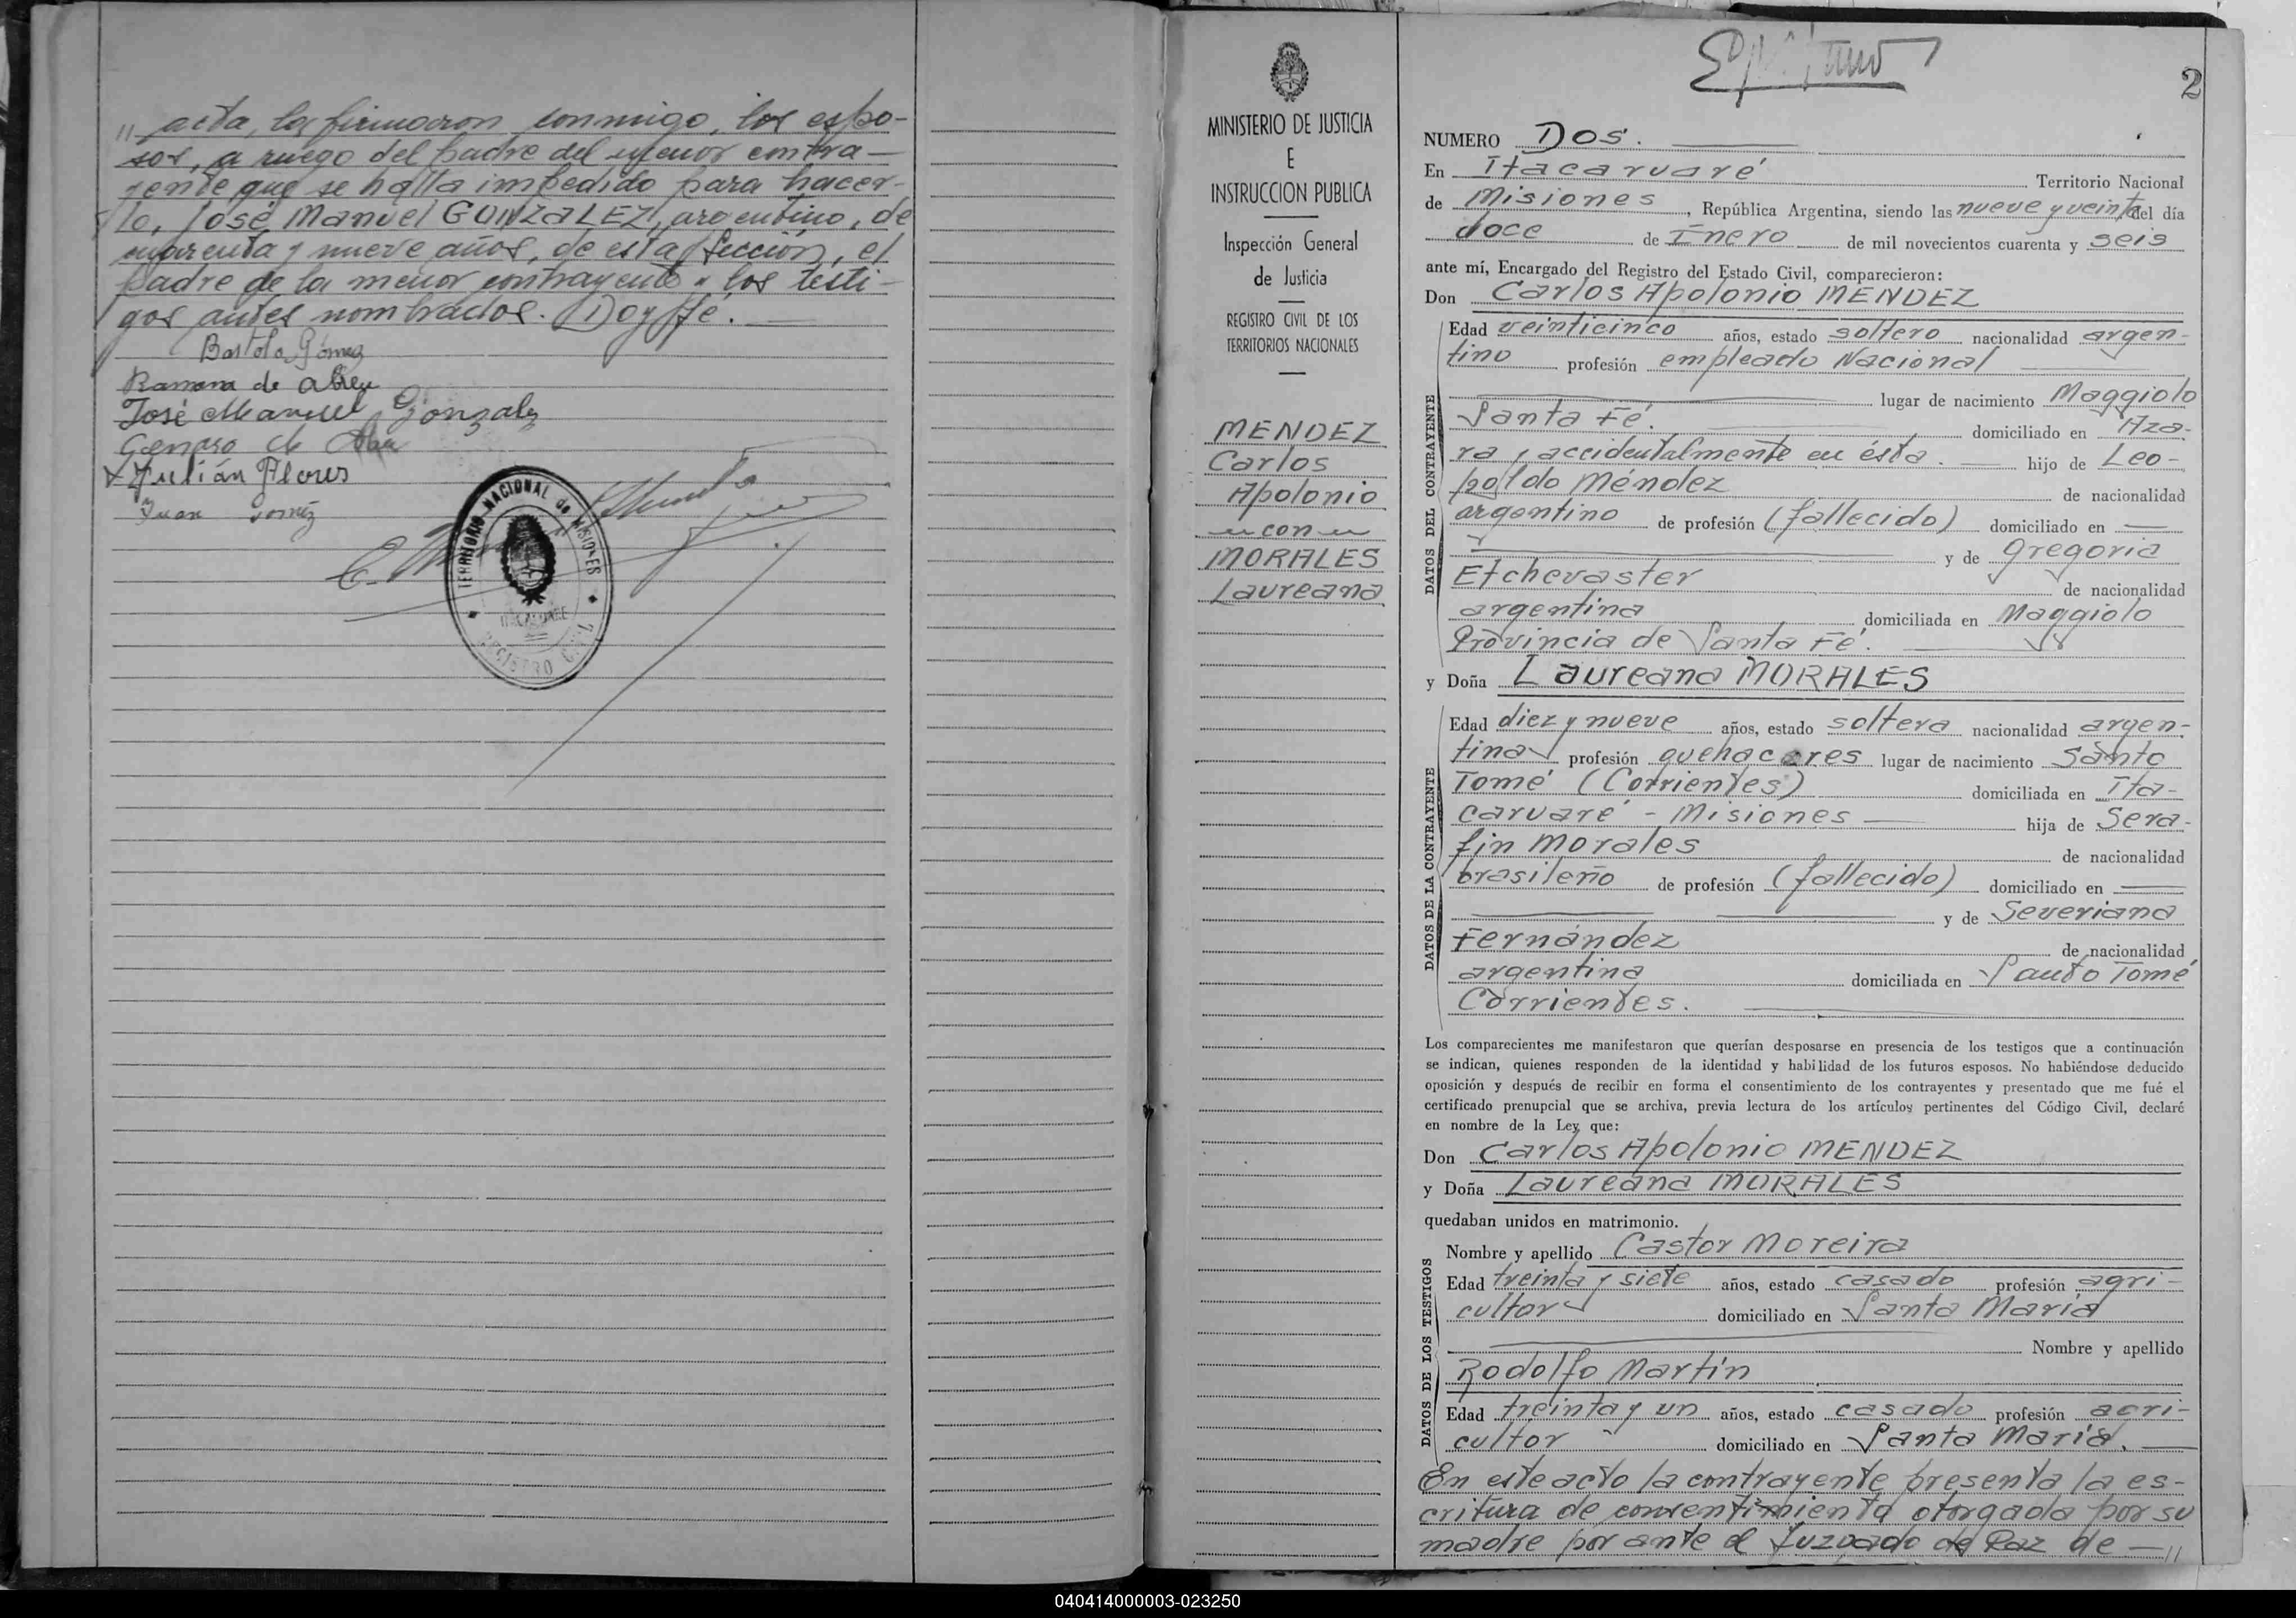 " acta, la firmaron conmigo, los espo-
sos, a ruego del padre del menor contra-
yente que se halla impedido para hacer-
lo, José Manuel GONZALEZ, argentino, de
cuarenta y nueve años, de esta Sección, el
padre de la menor contrayente y los testi-
gos antes nombrados. Doy fé.
Bartola Gómez
Ramona de Abreu
José Manuel Gonzalez
Genaro de
Julián Flores
Juan Goméz
TERRITORIO NACIONAL de MISIONES
REGISTRO CIVIL
MINISTERIO DE JUSTICIA
E
INSTRUCCION PUBLICA
Inspección General
de Justicia
REGISTRO CIVIL DE LOS
TERRITORIOS NACIONALES
MENDEZ
Carlos
Apolonio
con
MORALES
Laureana
2
NUMERO Dos.
En Itacaruaré Territorio Nacional
de Misiones, República Argentina, siendo las nueve y veinte del día
doce de Enero de mil novecientos cuarenta y seis
ante mí, Encargado del Registro del Estado Civil, comparecieron:
Don Carlos Apolonio MENDEZ
DATOS DEL CONTRAYENTE
Edad veinticinco años, estado soltero nacionalidad argen-
tino profesión empleado Nacional
lugar de nacimiento Maggiolo
Santa Fé. domiciliado en Aza-
ra, accidentalmente en ésta. hijo de Leo-
poldo Méndez de nacionalidad
argentino de profesión (fallecido) domiciliado en —
y de Gregoria
Etchevaster de nacionalidad
argentina domiciliada en Maggiolo
Provincia de Santa Fé.
y Doña Laureana MORALES
DATOS DE LA CONTRAYENTE
Edad diez y nueve años, estado soltera nacionalidad argen-
tina profesión quehaceres lugar de nacimiento Santo
Tomé (Corrientes) domiciliada en Ita-
caruaré - Misiones — hija de Sera-
fin Morales de nacionalidad
brasileño de profesión (fallecido) domiciliado en —
y de Severiana
Fernández de nacionalidad
argentina domiciliada en Santo Tomé
Corrientes.
Los comparecientes me manifestaron que querían desposarse en presencia de los testigos que a continuación
se indican, quienes responden de la identidad y habilidad de los futuros esposos. No habiéndose deducido
oposición y después de recibir en forma el consentimiento de los contrayentes y presentado que me fué el
certificado prenupcial que se archiva, previa lectura de los artículos pertinentes del Código Civil, declaré
en nombre de la Ley que:
Don Carlos Apolonio MENDEZ
y Doña Laureana MORALES
quedaban unidos en matrimonio.
DATOS DE LOS TESTIGOS
Nombre y apellido Castor Moreira
Edad treinta y siete años, estado casado profesión agri-
cultor domiciliado en Santa María
Nombre y apellido
Rodolfo Martín
Edad treinta y un años, estado casado profesión agri-
cultor domiciliado en Santa María.
En este acto la contrayente presenta la es-
critura de consentimiento otorgada por su
madre por ante el Juzgado de Paz de —"
040414000003-023250